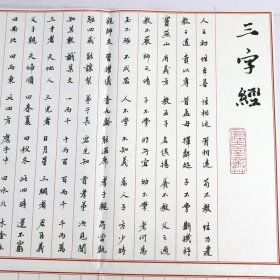 三字經
人之初 性本善 性相近 習相遠 苟不教 性乃遷
教之道 貴以專 昔孟母 擇鄰處 子不學 斷機杼
竇燕山 有義方 教五子 名俱揚 養不教 父之過
教不嚴 師之惰 子不學 非所宜 幼不學 老何為
玉不琢 不成器 人不學 不知義 為人子 方少時
親師友 習禮儀 香九齡 能溫席 孝於親 所當執
融四歲 能讓梨 弟於長 宜先知 首孝弟 次見聞
知某數 識某文 一而十 十而百 百而千 千而萬
三才者 天地人 三光者 日月星 三綱者 君臣義
父子親 夫婦順 曰春夏 曰秋冬 此四時 運不窮
曰南北 曰西東 此四方 應乎中 曰水火 木金土